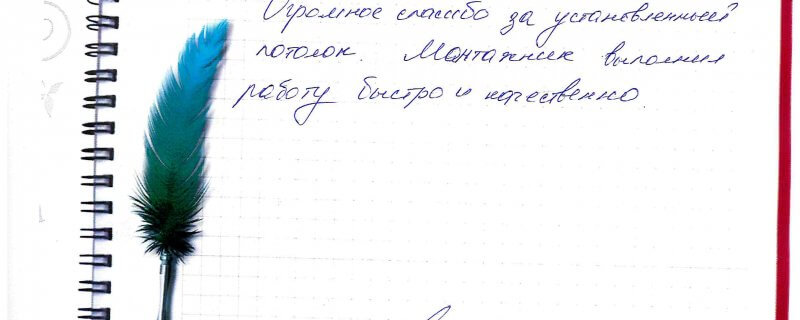 Огромное спасибо за установленный
потолок. Монтажник выполнил
работу быстро и качественно